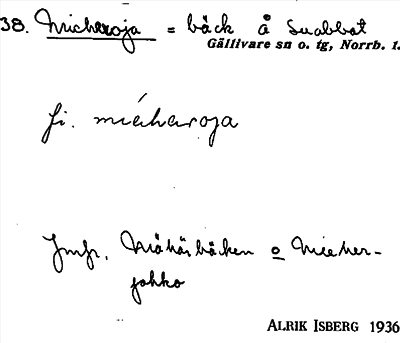 38. Micheroja = bäck å Suabbat
Gällivare sn o. tg, Norrb. l.
fi. miéharoja
Jmfr. Mähäsbäcken o Mieher-
johko
ALRIK ISBERG 1936